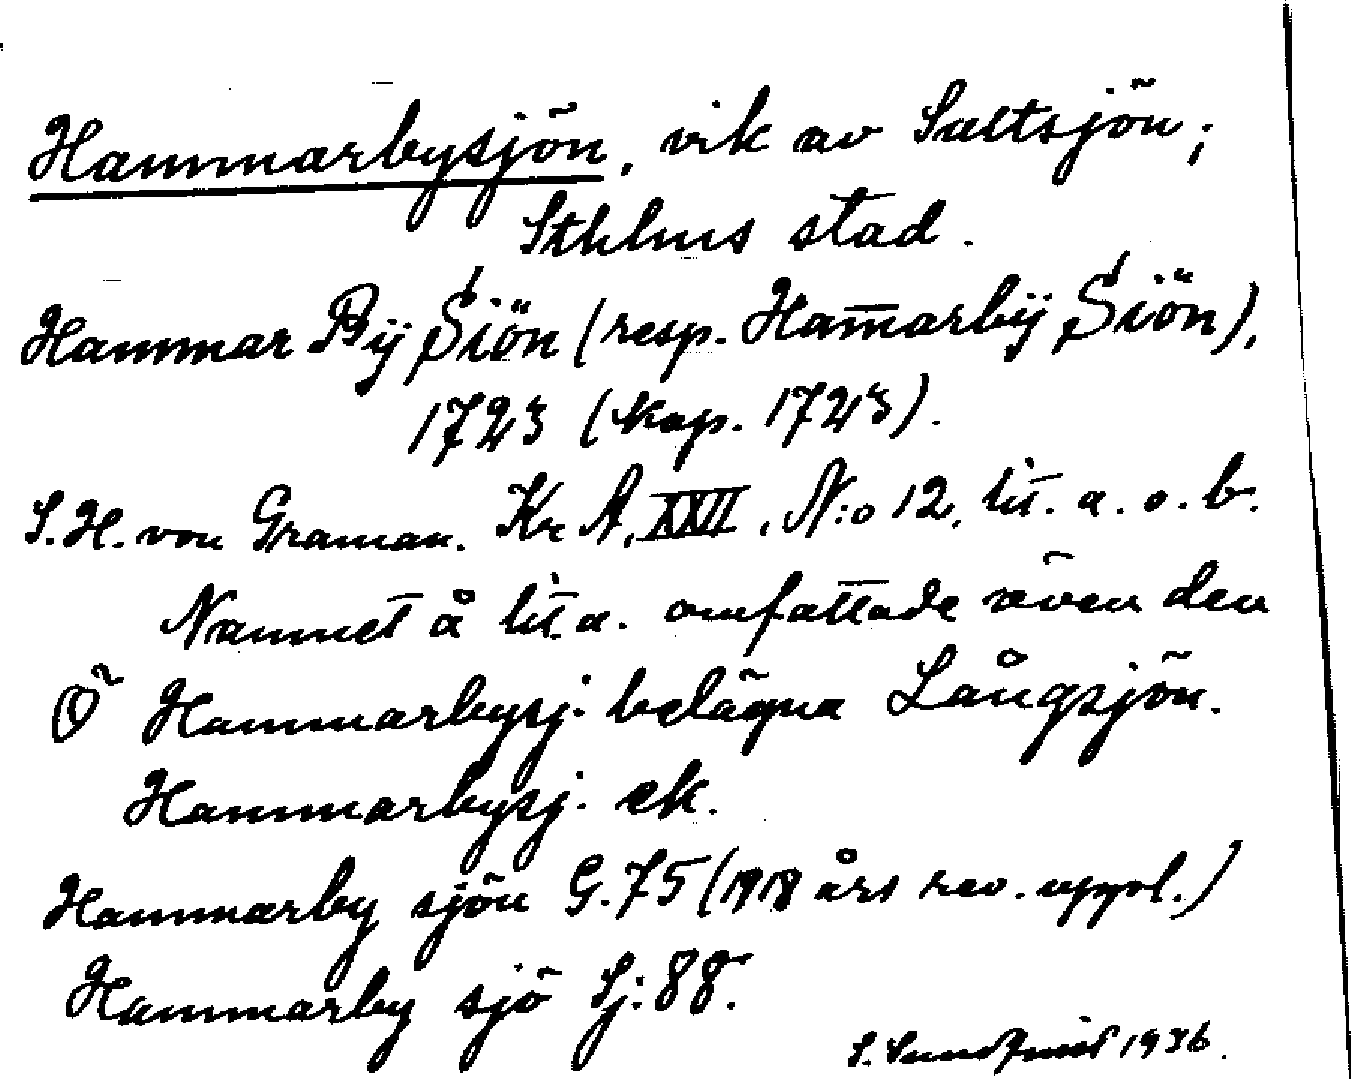 Hammarbysjön, vik av Saltsjön;
Sthlms stad.
Hammar Bÿ Siön (resp. Ham̄arbÿ Siön),
1723 (kop. 1723).
S.H. von Graman. Kr A, XXII, N:o 12, lit. a. o. b.
Namnet å lit a. omfattade även den
Ö Hammarbysj. belägna Långsjön.
Hammarbysj. ek.
Hammarby sjön G. 75 (1918 års rev. uppl.)
Hammarby sjö Sj: 88.
S. Sundqvist 1936.